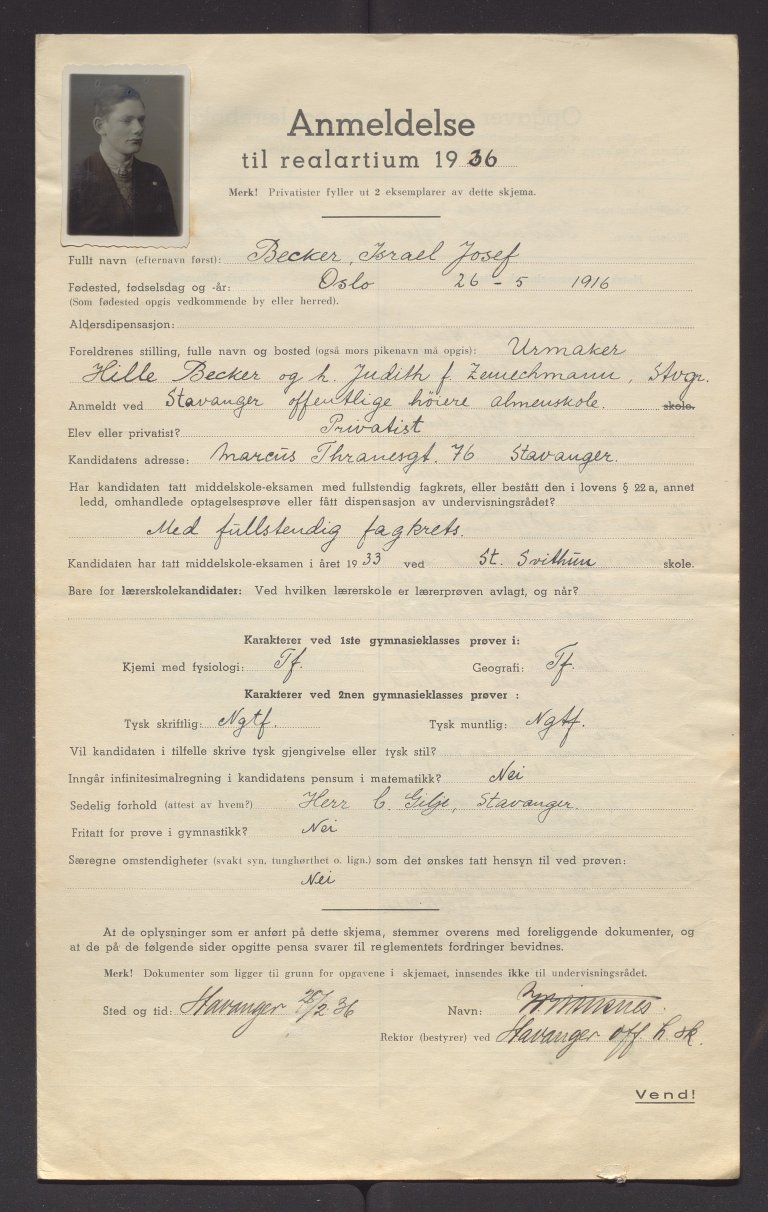 Anmeldelse
til realartium 1936
Merk! Privatister fyller ut 2 eksemplarer av dette skjema.
Fullt navn (efternavn først): Becker, Israel Josef
Fødested, fødselsdag og -år: Oslo 26 - 5 1916
(Som fødested opgis vedkommende by eller herred).
Aldersdipensasjon:
Foreldrenes stilling, fulle navn og bosted (også mors pikenavn må opgis): Urmaker
Hille Becker og h. Judith f. Zemechmann, Stvgr.
Anmeldt ved Stavanger offentlige höiere almenskole. skole.
Elev eller privatist? Privatist
Kandidatens adresse: Marcus Thranesgt. 76 Stavanger.
Har kandidaten tatt middelskole-eksamen med fullstendig fagkrets, eller bestått den i lovens § 22 a, annet
ledd, omhandlede optagelsesprøve eller fått dispensasjon av undervisningsrådet?
Med fullstendig fagkrets.
Kandidaten har tatt middelskole-eksamen i året 1933 ved St. Svithun skole.
Bare for lærerskolekandidater: Ved hvilken lærerskole er lærerprøven avlagt, og når?
Karakterer ved 1ste gymnasieklasses prøver i:
Kjemi med fysiologi: Tf. Geografi: Tf.
Karakterer ved 2nen gymnasieklasses prøver :
Tysk skriftlig: Ngtf. Tysk muntlig: Ngtf.
Vil kandidaten i tilfelle skrive tysk gjengivelse eller tysk stil?
Inngår infinitesimalregning i kandidatens pensum i matematikk? Nei
Sedelig forhold (attest av hvem?) Herr C. Gilje, Stavanger.
Fritatt for prøve i gymnastikk? Nei
Særegne omstendigheter (svakt syn, tunghørthet o. lign.) som det ønskes tatt hensyn til ved prøven:
Nei
At de oplysninger som er anført på dette skjema, stemmer overens med foreliggende dokumenter, og
at de på de følgende sider opgitte pensa svarer til reglementets fordringer bevidnes.
Merk! Dokumenter som ligger til grunn for opgavene i skjemaet, innsendes ikke til undervisningsrådet.
Sted og tid: Stavanger /2 36 Navn:
Rektor (bestyrer) ved Stavanger off. h. sk.
Vend!